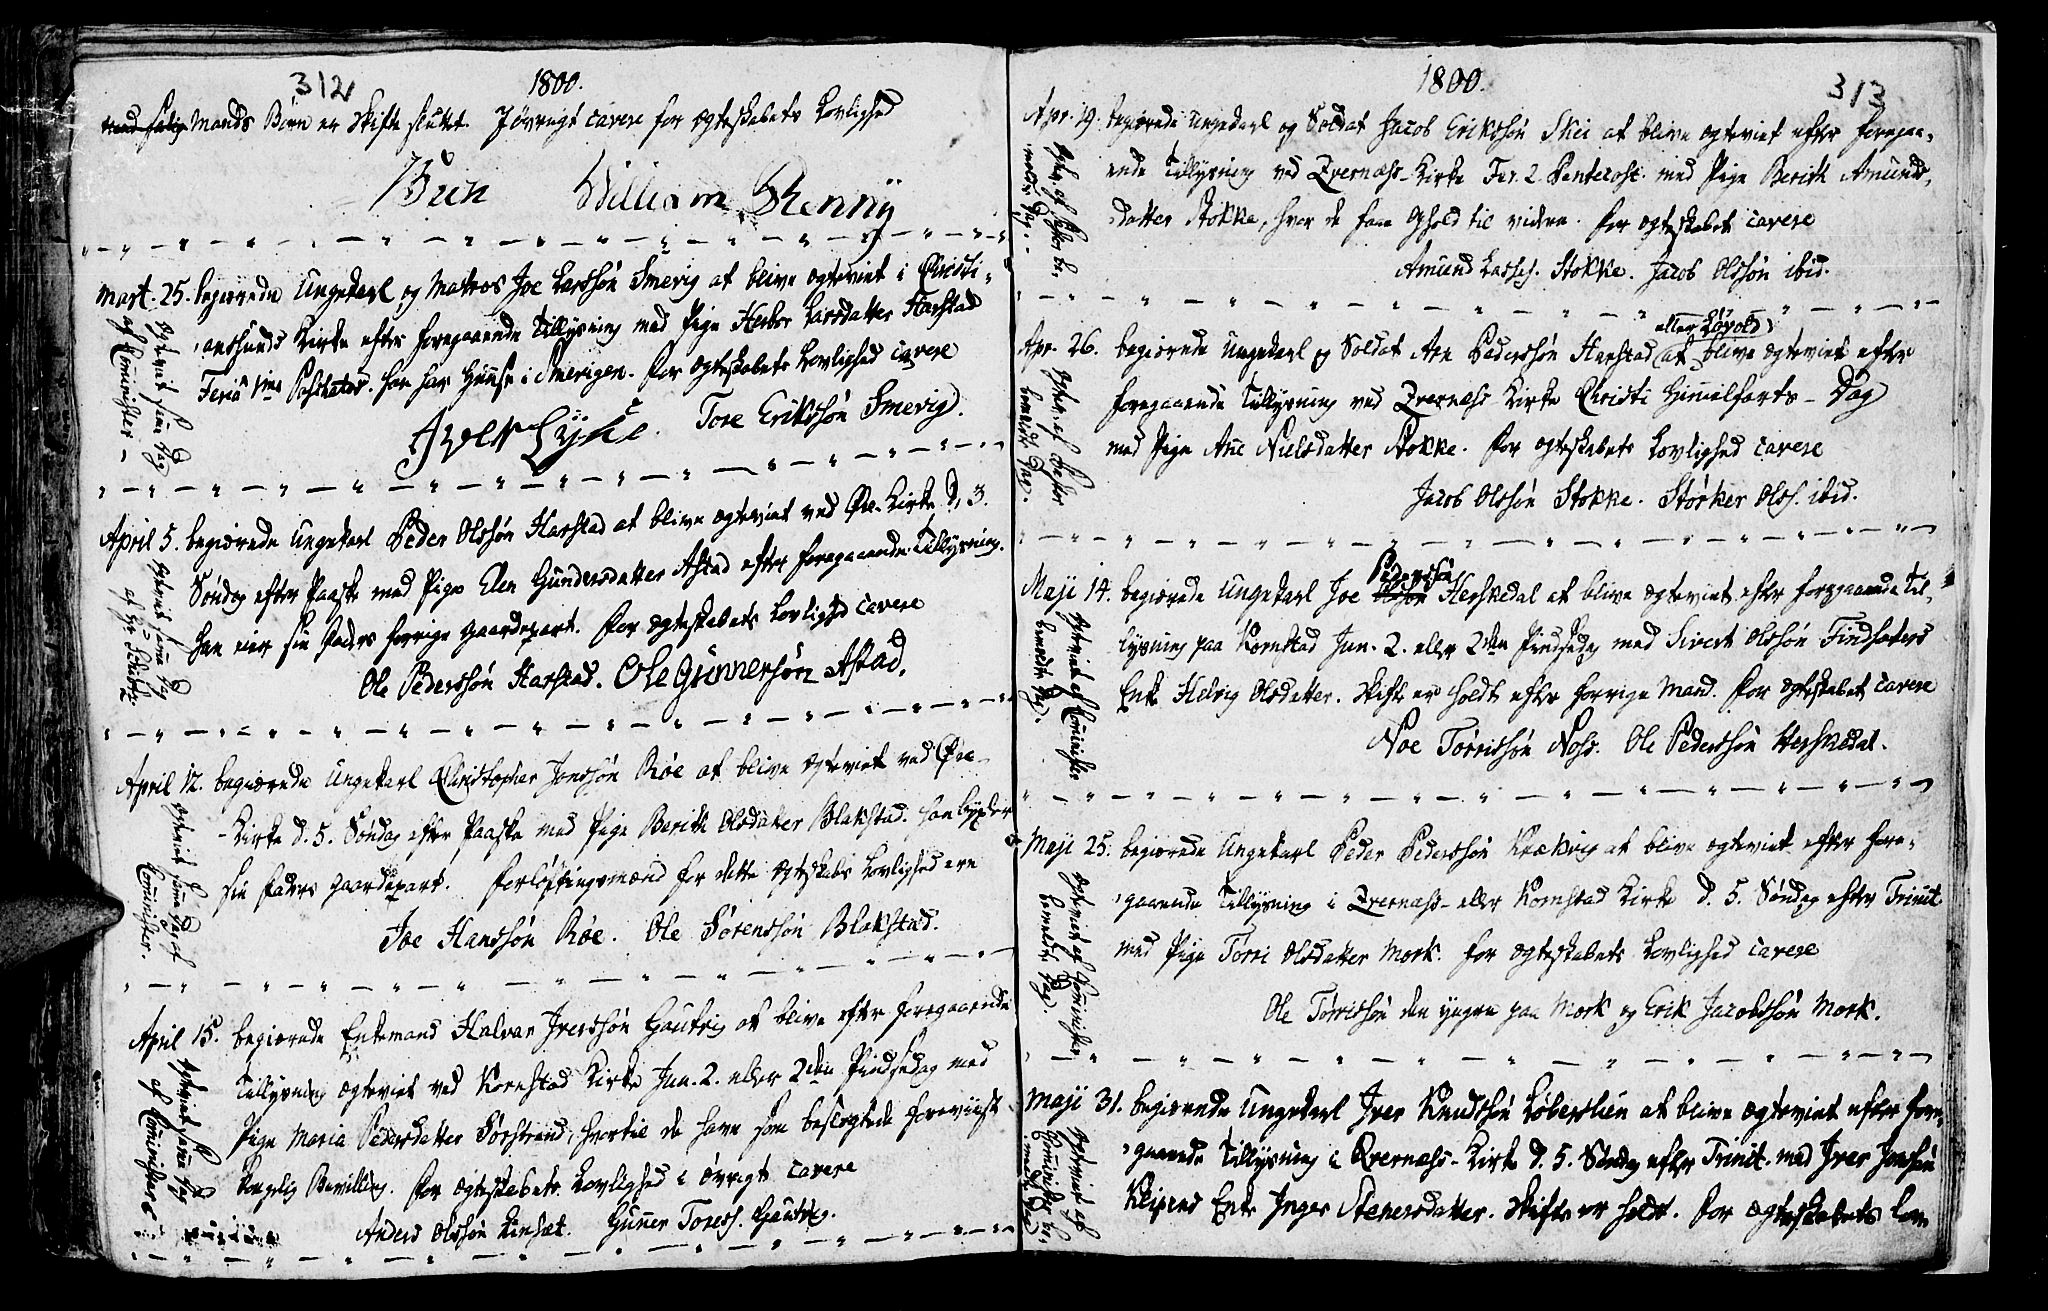 312
1800.
Mands Børn er Skifte sluttet. I øvrigt cavere for Ægteskabets Lovlighed
Buch William Shenny
Mart. 25. begierede Ungekarl og Matros Joe Larssøn Smevig at blive ægteviet i Christi-
ansunds Kirke efter foregaaende Tillysning med Pige Herbor Larsdatter Harstad
Feria 1ma Paschatos. han har Huuse i Smevigen. For Ægteskabets Lovlighed cavere
Iver Lyhe. Tore Erikssøn Smevig.
ægteviet samme Dag
af Comminister
April 5. begierede Ungekarl Peder Olssøn Harstad at blive ægteviet ved Øre-Kirke d. 3.
Søndag efter Paaske med Pige Elen Gundersdatter Astad efter foregaaende Tillysning.
han eier sin Faders forrige Gaardepart. For Ægteskabets Lovlighed cavere
Ole Pederssøn Harstad. Ole Gunnersøn Astad.
ægteviet samme Dag
af Hr.
April 12. begierede Ungekarl Christopher Jonssøn Røe at blive ægteviet ved Øre-
Kirke d. 5. Søndag efter Paaske med Pige Berith Olsdatter Blakstad. han bygder
sin Faders Gaardepart. Forløftingsmænd for dette Ægteskabs Lovlighed ere
Joe Hanssøn Røe. Ole Sørenssøn Blakstad.
ægteviet samme Dag af
Comminister.
April 15. begierede Enkemand Halvar Iverssøn Gautvig at blive efter foregaaende
Tillysning ægteviet ved Kornstad Kirke Jun. 2. eller 2den Pindsedag med
Pige Maria Pedersdatter Sørstrand, hvortil de have som beslegtede foreviist
kongelig Bevilling. For Ægteskabets Lovlighed i øvrigt cavere
Anders Olssøn Linset. Gunner Toress. Gautvig.
ægteviet samme Dag
af Comminister
313
1800.
Apr. 19. begierede Ungekarl og Soldat Jacob Erikssøn Skei at blive ægteviet efter foregaa-
ende Tillysning ved Qvernæss-Kirke Fer. 2. Pentecost. med Pige Berith Amunds-
datter Stokke, hvor de faae Ophold til videre. For Ægteskabet cavere
Amund Lasses. Stokke. Jacob Olssøn ibid.
ægtev. af Pastor be-
meldte Dag.
Apr. 26. begierede Ungekarl og Soldat Arn Pederssøn Harstad (eller Løvold) at blive ægteviet efter
foregaaende Tillysning ved Qvernæss Kirke Christi Himmelfarts-Dag
med Pige Ane Nielsdatter Stokke. For Ægteskabets Lovlighed cavere
Jacob Olssøn Stokke. Størker Olss. ibid.
ægtev. af Pastor
bemeldte Dag.
Maji 14. begierede Ungekarl Joe Pederssøn Herskedal at blive ægteviet efter foregaaende Til-
lysning paa Kornstad Jun. 2. eller 2den Pindsedag med Sivert Olssøn Findsæters
Enke Helvig Olsdatter. Skifte er holdt efter forrige Mand. For Ægteskabet cavere
Noe Tørrissøn Noss. Ole Pederssøn Herskedal.
ægteviet af Comminister
bemeldte Dag.
Maji 25. begierede Ungekarl Peder Pederssøn Krækvig at blive ægteviet efter fore-
gaaende Tillysning i Qvernæss- eller Kornstad Kirke d. 5. Søndag efter Trinit.
med Pige Torri Olsdatter Mork. for Ægteskabets Lovlighed cavere
Ole Tørrissøn den yngre paa Mork og Erik Jacobssøn Mork.
ægteviet af Comminister
bemeldte Dag.
Maji 31. begierede Ungekarl Iver Knudssøn Løberslien at blive ægteviet efter fore-
gaaende Tillysning i Qvernæss-Kirke d. 5. Søndag efter Trinit. med Iver Jonssøn
Klipens Enke Inger Stenersdatter. Skifte er holdt. For Ægteskabets Lov-
ægteviet af
Comminister be-
meldte Dag